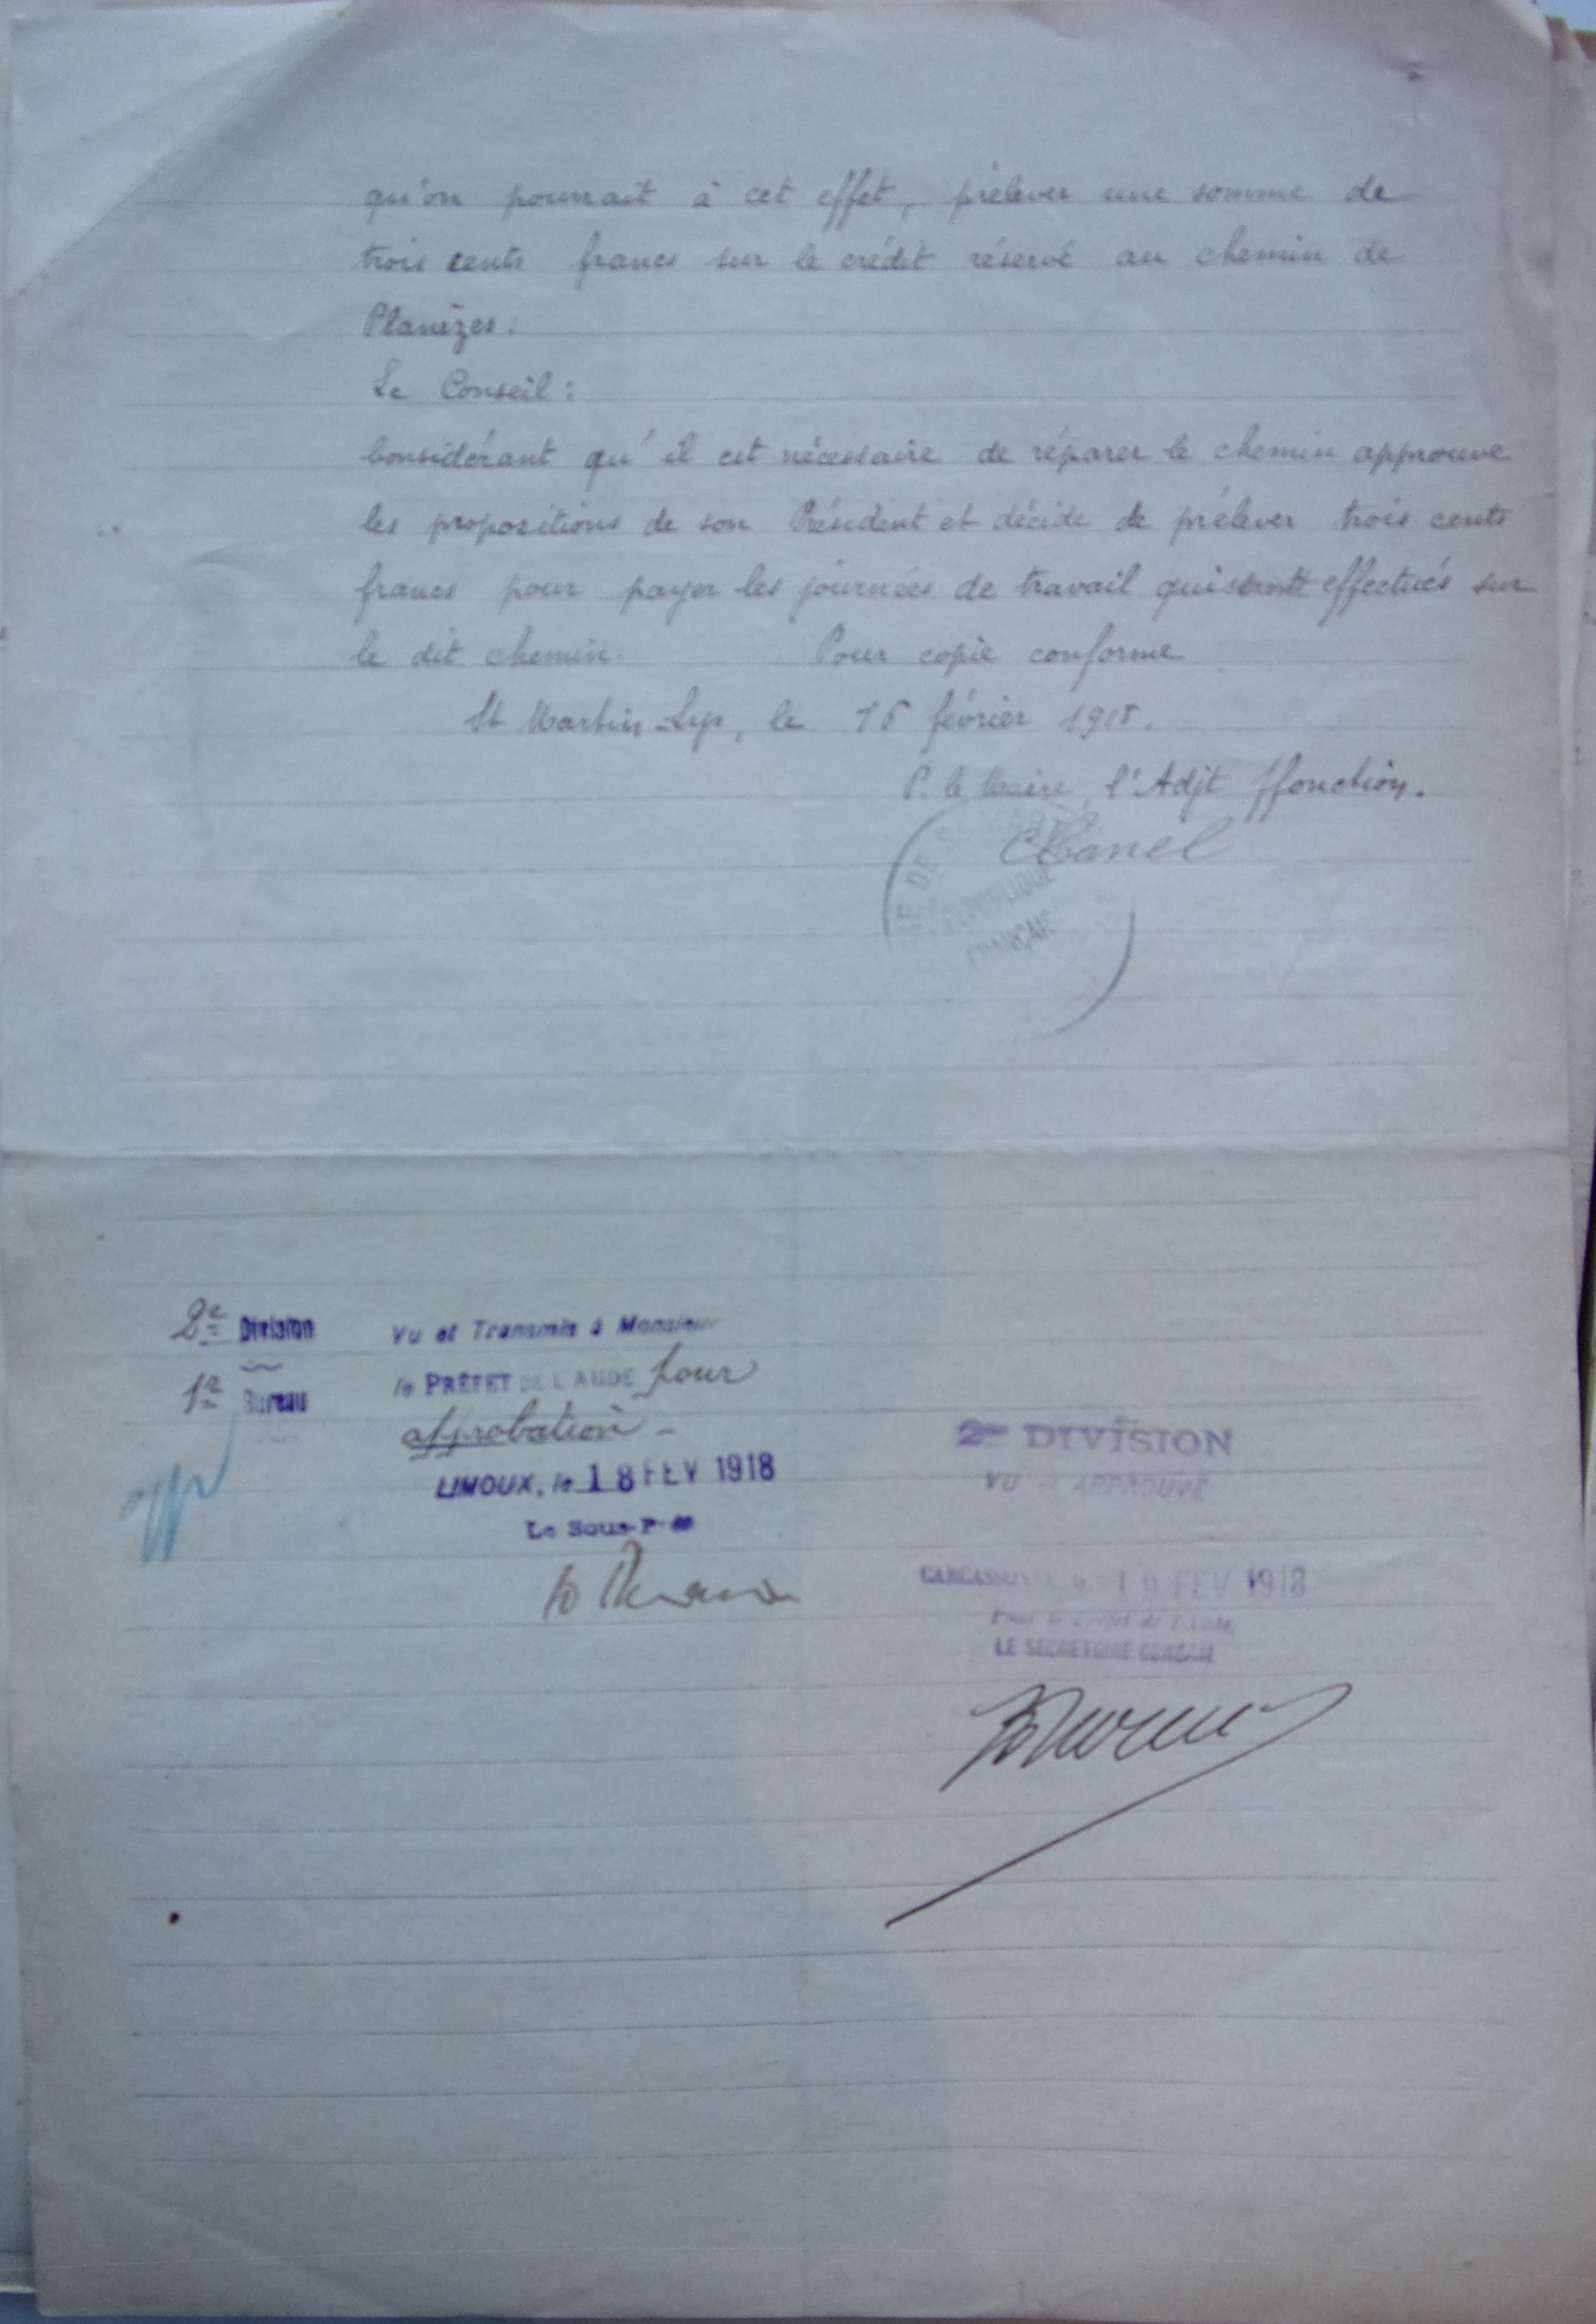 qu'on pourrait à cet effet, prélever une somme de
trois cents francs sur le crédit réservé au chemin de
Planèzes.
Le Conseil :
Considérant qu'il est nécessaire de réparer le chemin approuve
les propositions de son Président et décide de prélever trois cents
francs pour payer les journées de travail qui seront effectués sur
le dit chemin. Pour copie conforme
St Martin-Lys, le 16 février 1918.
P. le Maire, l'Adjt ffonction.
Canel
RÉPUBLIQUE
FRANÇAISE
2e Division
1er Bureau
Vu et Transmis à Monsieur
le PRÉFET DE L'AUDE pour
approbation -
LIMOUX, le 18 FEV 1918
Le Sous-P
2me DIVISION
VU et APPROUVÉ
CARCASSONNE, le 19 FEV 1918
Pour le Préfet de l'Aude,
LE SECRÉTAIRE GÉNÉRAL